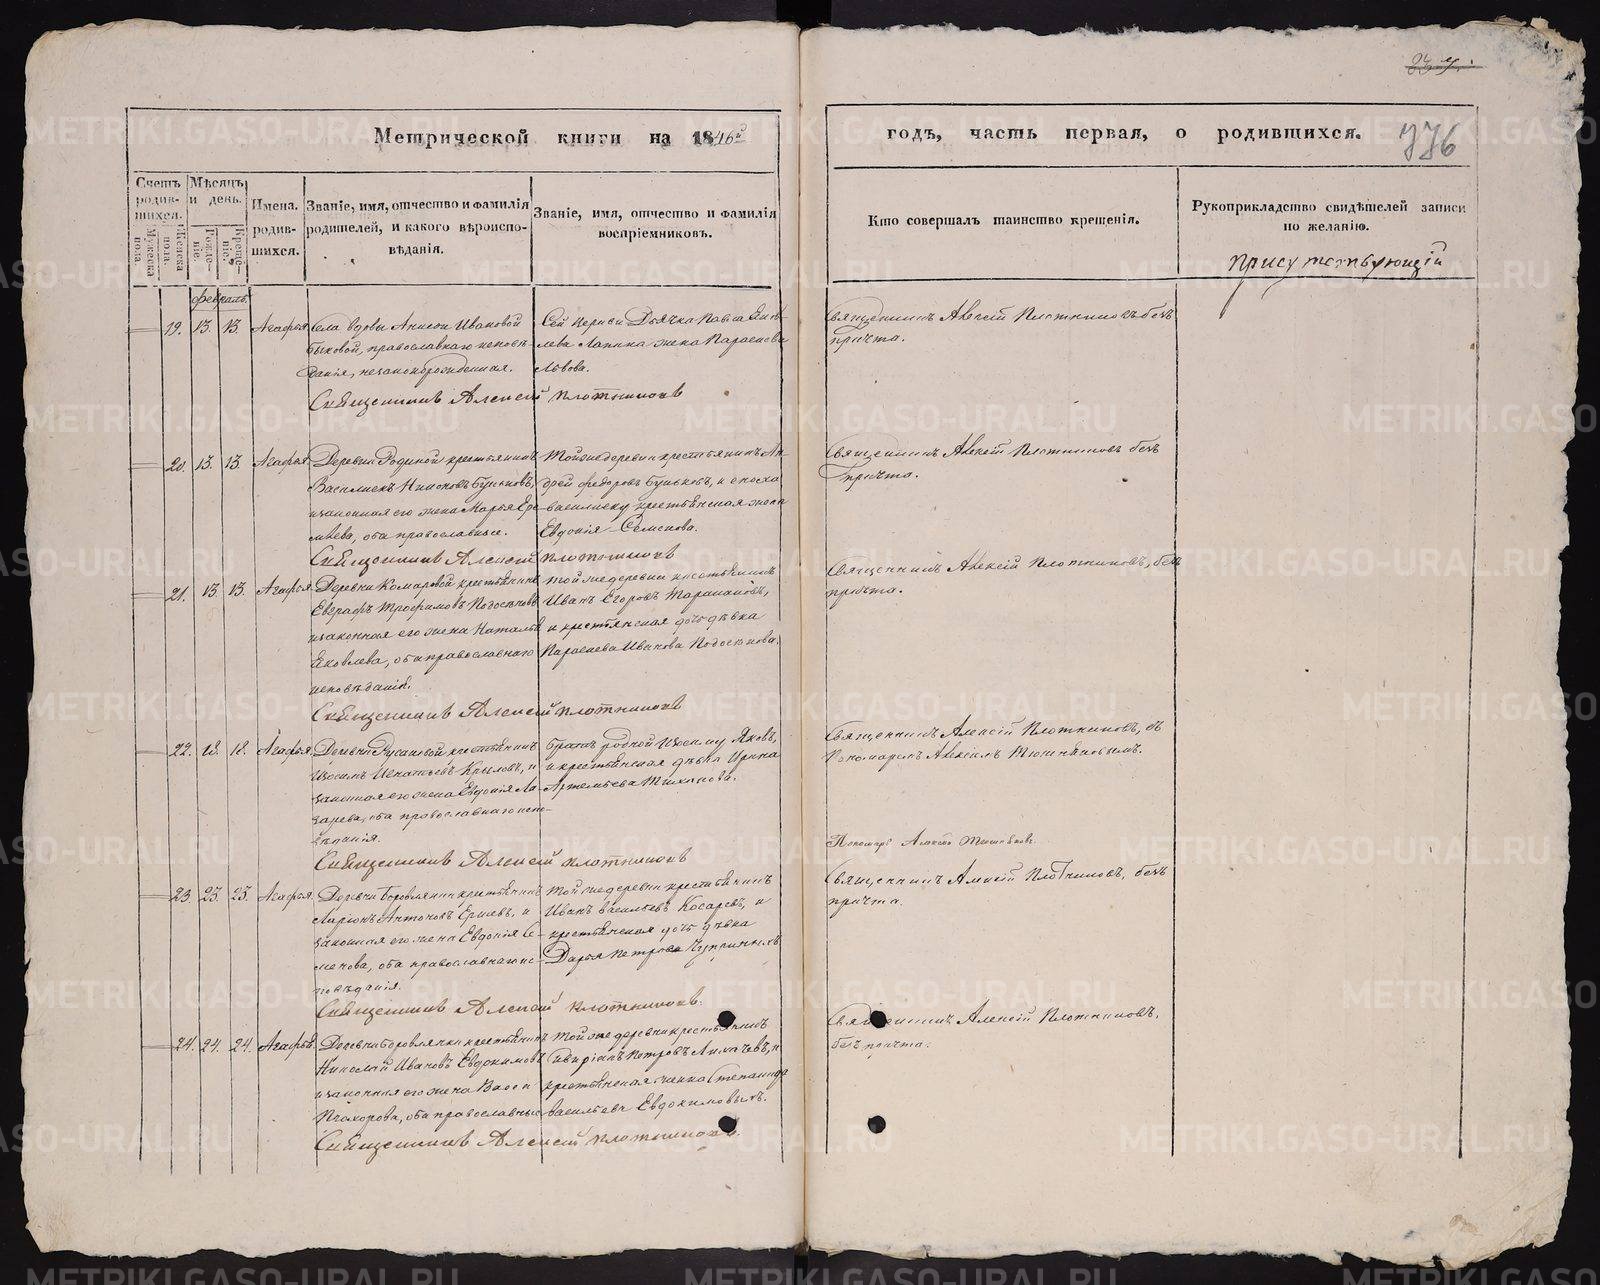 Метрической книги на 1846й
годъ, часть первая, о родившихся.
776
Счетъ родившихся.
Мужеска пола.
Женска пола.
Мѣсяцъ и день.
Рожденіе.
Крещеніе.
Имена родившихся.
Званіе, имя, отчество и фамилія родителей, и какого вѣроисповѣданія.
Званіе, имя, отчество и фамилія воспріемниковъ.
Кто совершалъ таинство крещенія.
Рукоприкладство свидѣтелей записи по желанію.
присутствующій
февраль
19. 13 13 Агафья
Села вдовы Анисьи Ивановой
Быковой, православнаго исповѣ-
данія, незаконорожденная.
Священникъ Алексей Плотниковъ
Сей церкви Дьячка Павла Яков-
лева Лапина жена Параскева
Львова.
Священникъ Алексій Плотниковъ безъ
причта.
20. 13. 13. Агафья
Деревни Родиной крестьянинъ
законная его жена Марья Ере-
мѣева, оба православные.
Священникъ Алексей Плотниковъ
Тойже деревни крестьянинъ Ан-
дрей Федоровъ
крестьянская жена
Евдокія Семенова.
Священникъ Алексій Плотниковъ безъ
причта.
21. 13. 13. Агафья
Деревни Комаровой крестьянинъ
Евграфъ Трофимовъ Подосеновъ
и законная его жена Наталья
Яковлева, оба православнаго
исповѣданія.
Священникъ Алексей Плотниковъ
Той же деревни крестьянинъ
Иванъ Егоровъ Таракановъ,
и крестьянская дочь дѣвка
Параскева Иванова Подосенова.
Священникъ Алексій Плотниковъ, безъ
причта.
22. 18. 18. Агафья
Деревни Русаковой, крестьянинъ
Изосимъ Игнатьевъ Крыловъ, и
законная его жена Евдокія Ла-
зарева, оба православнаго испо-
вѣданія.
Священникъ Алексей Плотниковъ
Братъ родной Изосиму Яковъ,
и крестьянская дѣвка Ирина
Артемьева Тиханова.
Священникъ Алексій Плотниковъ, съ
Пономаремъ Алексѣемъ
Пономарь Алексей
23. 23. 23. Агафья
Деревни Боровлянки крестьянинъ
Ларіонъ Антоновъ Ершевъ, и
законная его жена Евдокія Се-
менова, оба православнаго ис-
повѣданія.
Священникъ Алексей Плотниковъ.
Той же деревни крестьянинъ
Иванъ Васильевъ Косаревъ, и
крестьянская дочь дѣвка
Дарья Петрова Чуприныхъ
Священникъ Алексій Плотниковъ, безъ
причта.
24. 24. 24. Агафья
Деревни Боровлянки крестьянинъ
Николай Ивановъ Евдокимовъ
и законная его жена
Прохорова, оба православные
Священникъ Алексей Плотниковъ.
Той же деревни крестьянинъ
Петровъ Лихачевъ, и
крестьянская женка Степанида
Васильева Евдокимовыхъ.
Священникъ Алексій Плотниковъ,
безъ причта.